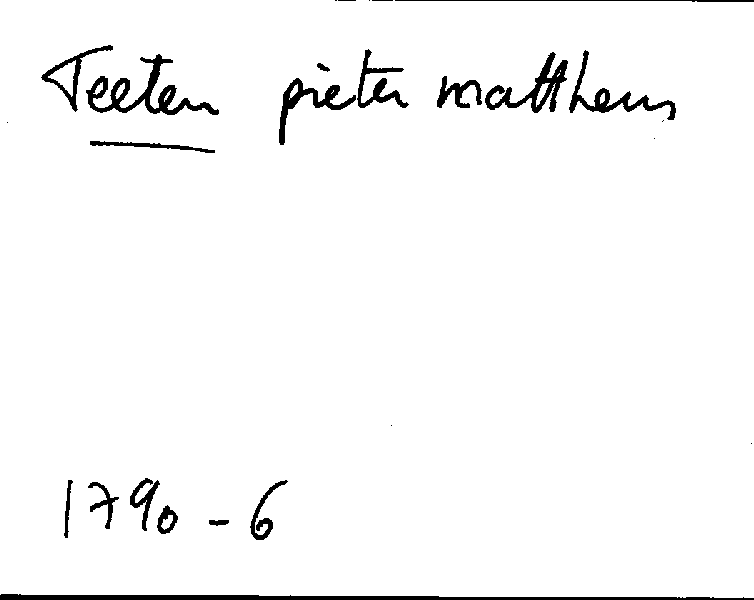 Teeten pieter mattheus
1790 - 6